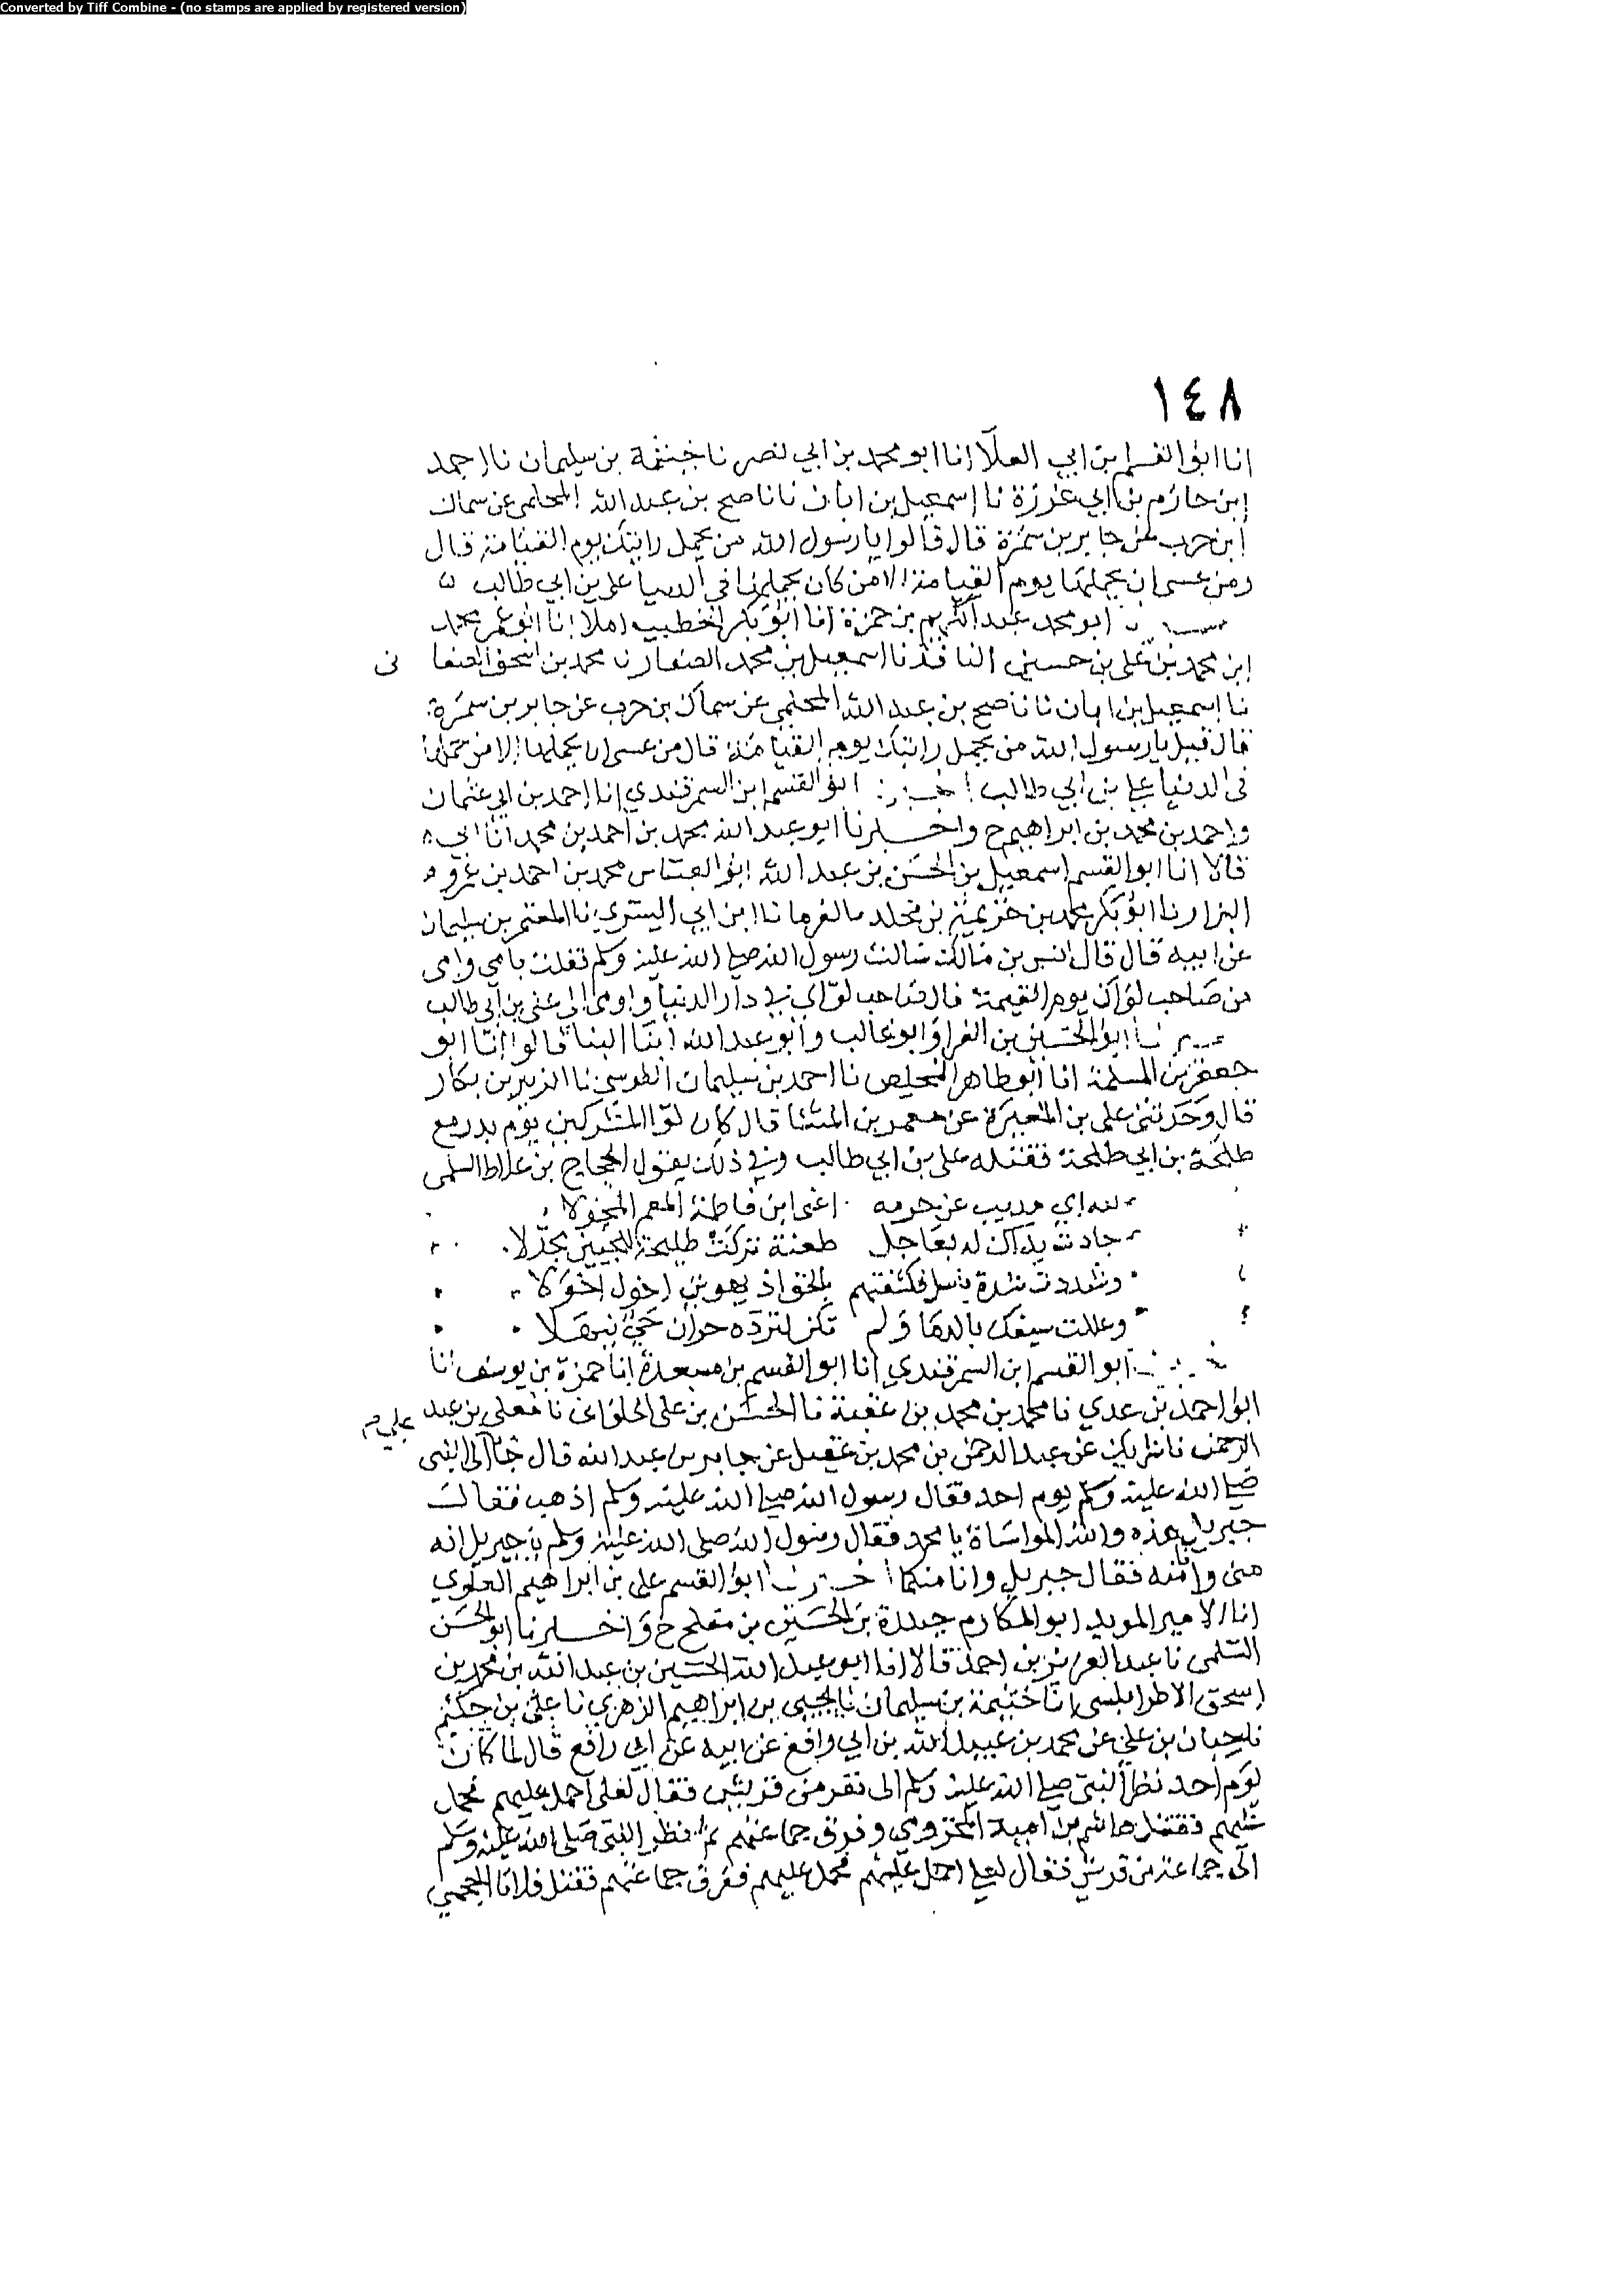 Converted by Tiff Combine - (no stamps are applied by registered version)
١٤٨
انا ابو القسم بن ابي العلا انا ابو محمد بن ابي نصر نا خيثمة بن سليمان نا احمد
ابن حازم بن ابي غرزة نا اسمعيل بن ابان نا ناصح بن عبد الله المحلمي عن سماك
ابن حرب عن جابر بن سمرة قال قالوا يا رسول الله من يحمل رايتك يوم القيامة قال
ومن عسى ان يحملها يوم القيامة الا من كان يحملها في الدنيا علي بن ابي طالب
ابو محمد عبد الكريم بن حمزة انا ابو بكر الخطيب املا انا ابو عمر محمد
ابن محمد بن علي بن حسين الناقد نا اسمعيل بن محمد الصفار نا محمد بن اسحق الصغا نى
نا اسمعيل بن ابان نا ناصح بن عبد الله المحلمي عن سماك بن حرب عن جابر بن سمرة
قال قيل يا رسول الله من يحمل رايتك يوم القيامة قال من عسى ان يحملها الا من حملها
في الدنيا علي بن ابي طالب ابو القسم ابن السمرقندي انا احمد بن ابي عثمان
واحمد بن محمد بن ابراهيم ح واخبرنا ابو عبد الله محمد بن احمد بن محمد انا ابي
قالا انا ابو القسم اسمعيل بن الحسن بن عبد الله ابو العباس محمد بن احمد بن عمرو
البزار نا ابو بكر محمد بن خزيمة بن مخلد بالفرما نا ابن ابي السري نا المعتمر بن سليمان
عن ابيه قال قال انس بن مالك سالت رسول الله صلى الله عليه وسلم فقلت بابي وامي
من صاحب لوائك يوم القيمة قال صاحب لوائي في دار الدنيا واومى الى علي بن ابي طالب
ابو الحسين بن الفرا وابو غالب وابو عبد الله ابنا البنا قالوا انا ابو
جعفر بن المسلمة انا ابو طاهر المخلص نا احمد بن سليمان الطوسي نا الزبير بن بكار
قال وحدثني علي بن المغيرة عن معمر بن المثنا قال كان لوا المشركين يوم بدر مع
طلحة بن ابي طلحة فقتله علي بن ابي طالب وفي ذلك يقول الحجاج بن علاط السلمى
لله اي مذبب عن حرمه اعنى ابن فاطمة المعم المخولا
جادت يداك له بعاجل طعنة تركت طليحة للجبين مجدلا
وشددت شدة باسل فكشفتهم بالحق اذ يهوين اخول اخولا
وعللت سيفك بالدما ولم تكن لترده حران حتى ينهلا
ابو القسم ابن السمرقندي انا ابو القسم بن مسعدة انا حمزة بن يوسف انا
ابو احمد بن عدي نا محمد بن محمد بن عقبة نا الحسن بن علي الحلواني نا معلى بن عبد
علي
الرحمن نا شريك عن عبد الرحمن بن محمد بن عقيل عن جابر بن عبد الله قال جا الى النبى
صلى الله عليه وسلم يوم احد فقال رسول الله صلى الله عليه وسلم اذهب فقالت
جبريل هذه والله المواساة يا محمد فقال رسول الله صلى الله عليه وسلم يا جبريل انه
مني وانا منه فقال جبريل وانا منكما ابو القسم علي بن ابراهيم العلوي
انا الامير المويد ابو المكارم حيدرة بن الحسين بن مفلح ح واخبرنا ابو الحسن
السلمى نا عبد العزيز بن احمد قالا انا ابو عبد الله الحسين بن عبد الله بن محمد بن
اسحق الاطرابلسى انا خيثمة بن سليمان نا يحيى بن ابراهيم الزهري نا علي بن حكيم
نا حبان بن علي عن محمد بن عبيد الله بن ابي رافع عن ابيه عن ابي رافع قال لما كان
يوم احد نظر النبى صلى الله عليه وسلم الى نفر من قريش فقال لعلي احمل عليهم فحمل
عليهم فقتل هاشم بن امية المخزومي وفرق جماعتهم ثم نظر النبى صلى الله عليه وسلم
الى جماعة من قريش فقال لعلي احمل عليهم فحمل عليهم ففرق جماعتهم فقتل فلانا الجمحي